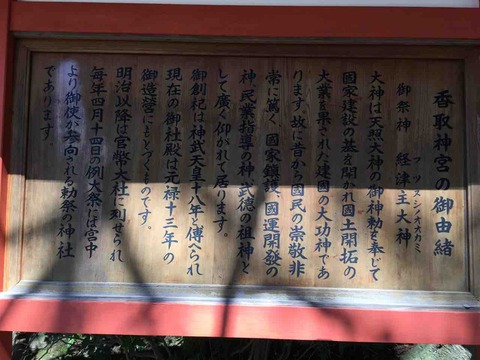 香取神宮の御由緒
御祭神 経津主大神
フツヌシノオオカミ
大神は天照大神の御神勅を奉じて
國家建設の基を開かれ國土開拓の
大業を果された建國の大功神であ
ります。故に昔から国民の崇敬非
常に篤く、國家鎮護、國運開發の
神、民業指導の神、武徳の祖神と
して廣く仰がれて居ります。
御創祀は神武天皇十八年と傳へられ
現在の御社殿は元禄十三年の
御造營にもとづくものです。
明治以降は官幣大社に列せられ
毎年四月十四日の例大祭には宮中
より御使が参向される勅祭の神社
であります。